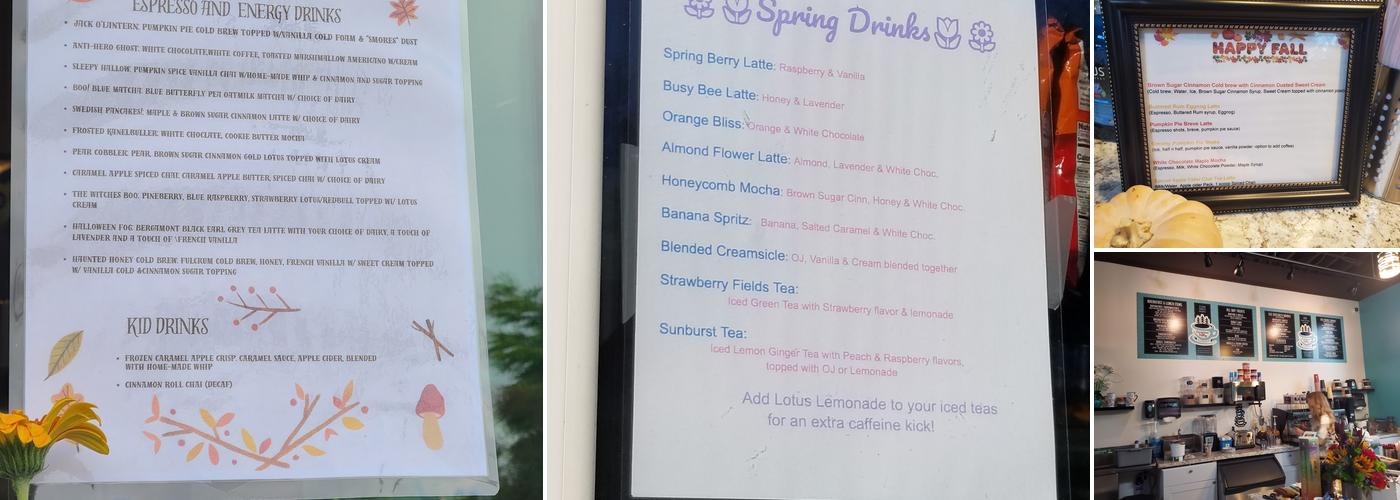 ESPRESSO AND ENERGY DRINKS
• JACK O'LANTERN: PUMPKIN PIE COLD BREW TOPPED W/VANILLA COLD FOAM & "SMORES" DUST
• ANTI-HERO GHOST: WHITE CHOCOLATE,WHITE COFFEE, TOASTED MARSHMALLOW AMERICANO W/CREAM
• SLEEPY HALLOW: PUMPKIN SPICE VANILLA CHAI W/HOME-MADE WHIP & CINNAMON AND SUGAR TOPPING
• BOO! BLUE MATCHA: BLUE BUTTERFLY PEA OATMILK MATCHA W/ CHOICE OF DAIRY
• SWEDISH PANCAKES!: MAPLE & BROWN SUGAR CINNAMON LATTE W/ CHOICE OF DAIRY
• FROSTED KANELBULLER: WHITE CHOCLATE, COOKIE BUTTER MOCHA
• PEAR COBBLER: PEAR, BROWN SUGAR CINNAMON GOLD LOTUS TOPPED WITH LOTUS CREAM
• CARAMEL APPLE SPICED CHAI: CARAMEL APPLE BUTTER, SPICED CHAI W/ CHOICE OF DAIRY
• THE WITCHES BOO: PINEBERRY, BLUE RASPBERRY, STRAWBERRY LOTUS/REDBULL TOPPED W/ LOTUS
CREAM
• HALLOWEEN FOG: BERGAMONT BLACK EARL GREY TEA LATTE WITH YOUR CHOICE OF DAIRY, A TOUCH OF
LAVENDER AND A TOUCH OF \FRENCH VANILLA
• HAUNTED HONEY COLD BREW: FULCRUM COLD BREW, HONEY, FRENCH VANILLA W/ SWEET CREAM TOPPED
W/ VANILLA COLD &CINNAMON SUGAR TOPPING
KID DRINKS
• FROZEN CARAMEL APPLE CRISP: CARAMEL SAUCE, APPLE CIDER, BLENDED
WITH HOME-MADE WHIP
• CINNAMON ROLL CHAI (DECAF)
Spring Drinks
Spring Berry Latte: Raspberry & Vanilla
Busy Bee Latte: Honey & Lavender
Orange Bliss: Orange & White Chocolate
Almond Flower Latte: Almond, Lavender & White Choc.
Honeycomb Mocha: Brown Sugar Cinn, Honey & White Choc.
Banana Spritz: Banana, Salted Caramel & White Choc.
Blended Creamsicle: OJ, Vanilla & Cream blended together
Strawberry Fields Tea:
Iced Green Tea with Strawberry flavor & lemonade
Sunburst Tea:
Iced Lemon Ginger Tea with Peach & Raspberry flavors,
topped with OJ or Lemonade
Add Lotus Lemonade to your iced teas
for an extra caffeine kick!
HAPPY FALL
Brown Sugar Cinnamon Cold brew with Cinnamon Dusted Sweet Cream
(Cold brew, Water, Ice, Brown Sugar Cinnamon Syrup, Sweet Cream topped with cinnamon
Buttered Rum Eggnog Latte
(Espresso, Buttered Rum syrup, Eggnog)
Pumpkin Pie Breve Latte
(Espresso shots, breve, pumpkin pie sauce)
(Ice, half n half, pumpkin pie sauce, vanilla powder -option to add coffee)
White Chocolate Maple Mocha
(Espresso, Milk, White Chocolate Powder, Maple Syrup)